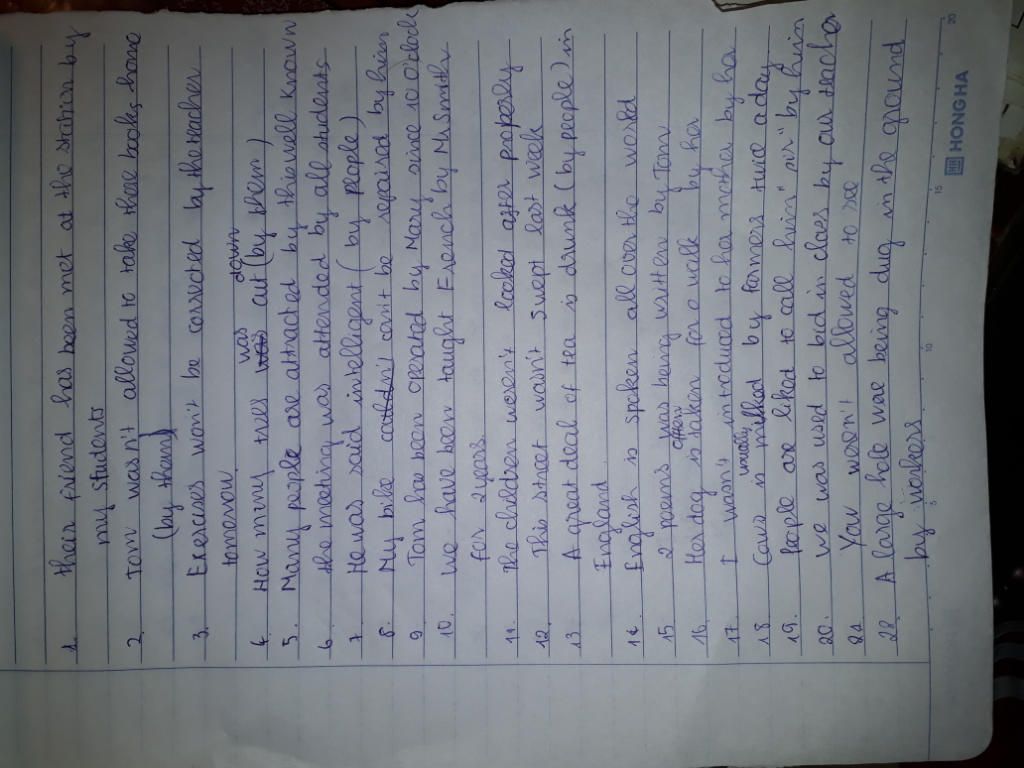 1. their friend has been met at the station by
my students
2. Tom wasn't allowed to take these books home
(by them)
3. Exercises won't be corrected by the teacher
tomorrow
4. How many trees was cut down (by them)
5. Many people are attracted by the well known
6. the meeting was attended by all students
7. He was said intelligent (by people)
8. My bike can't be repaired by him
9. Tom has been operated by Mary since 10 o'clock
10. We have been taught French by Mr Smith
for 2 years.
11. the children weren't looked after properly
12. This street wasn't swept last week
13. A great deal of tea is drunk (by people) in
England
14. English is spoken all over the world
15. 2 poems was being written by Tom
16. Her dog is often taken for a walk by her
17. I wasn't introduced to her mother by her
18. Cows is usually milked by farmers twice a day
19. People are liked to call him "sir" by him
20. We was used to bid in class by our teacher
You weren't allowed to se
A large hole was being dug in the ground
by workers
HONG HA
5 10 15 20